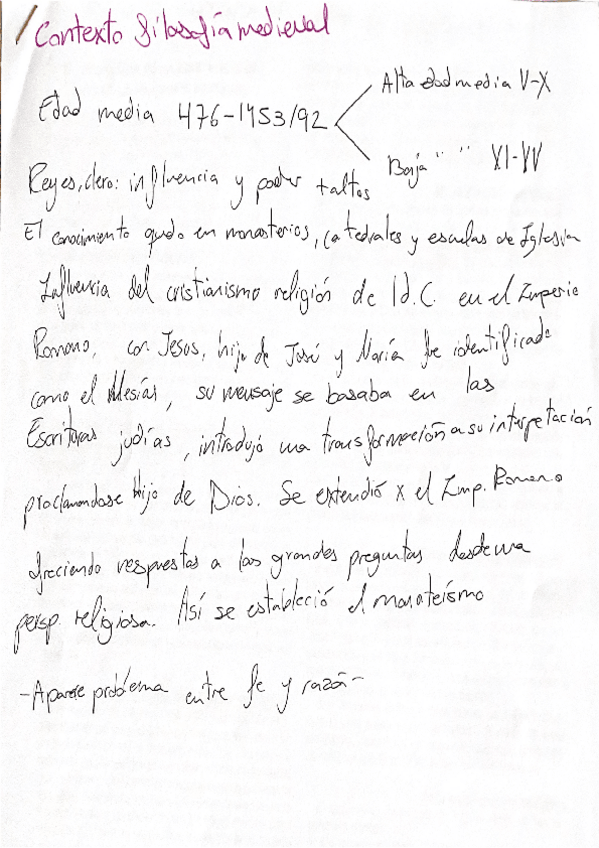 Contexto filosofía medieval
Alta edad media V-X
Edad media 476-1453/92
Baja " " XI-XV
Reyes, clero: influencia y poder + altos
El conocimiento quedo en monasterios, catedrales y escuelas de Iglesia
Influencia del cristianismo religión de I d.C. en el Imperio
Romano, con Jesús, hijo de José y María fue identificado
como el Mesías, su mensaje se basaba en las
Escrituras judías, introdujó una transformación a su interpetación
proclamandose Hijo de Dios. Se extendió x el Imp. Romano
ofreciendo respuestas a las grandes preguntas desde una
persp. religiosa. Así se estableció el monoteísmo
-Aparece problema entre fe y razón-